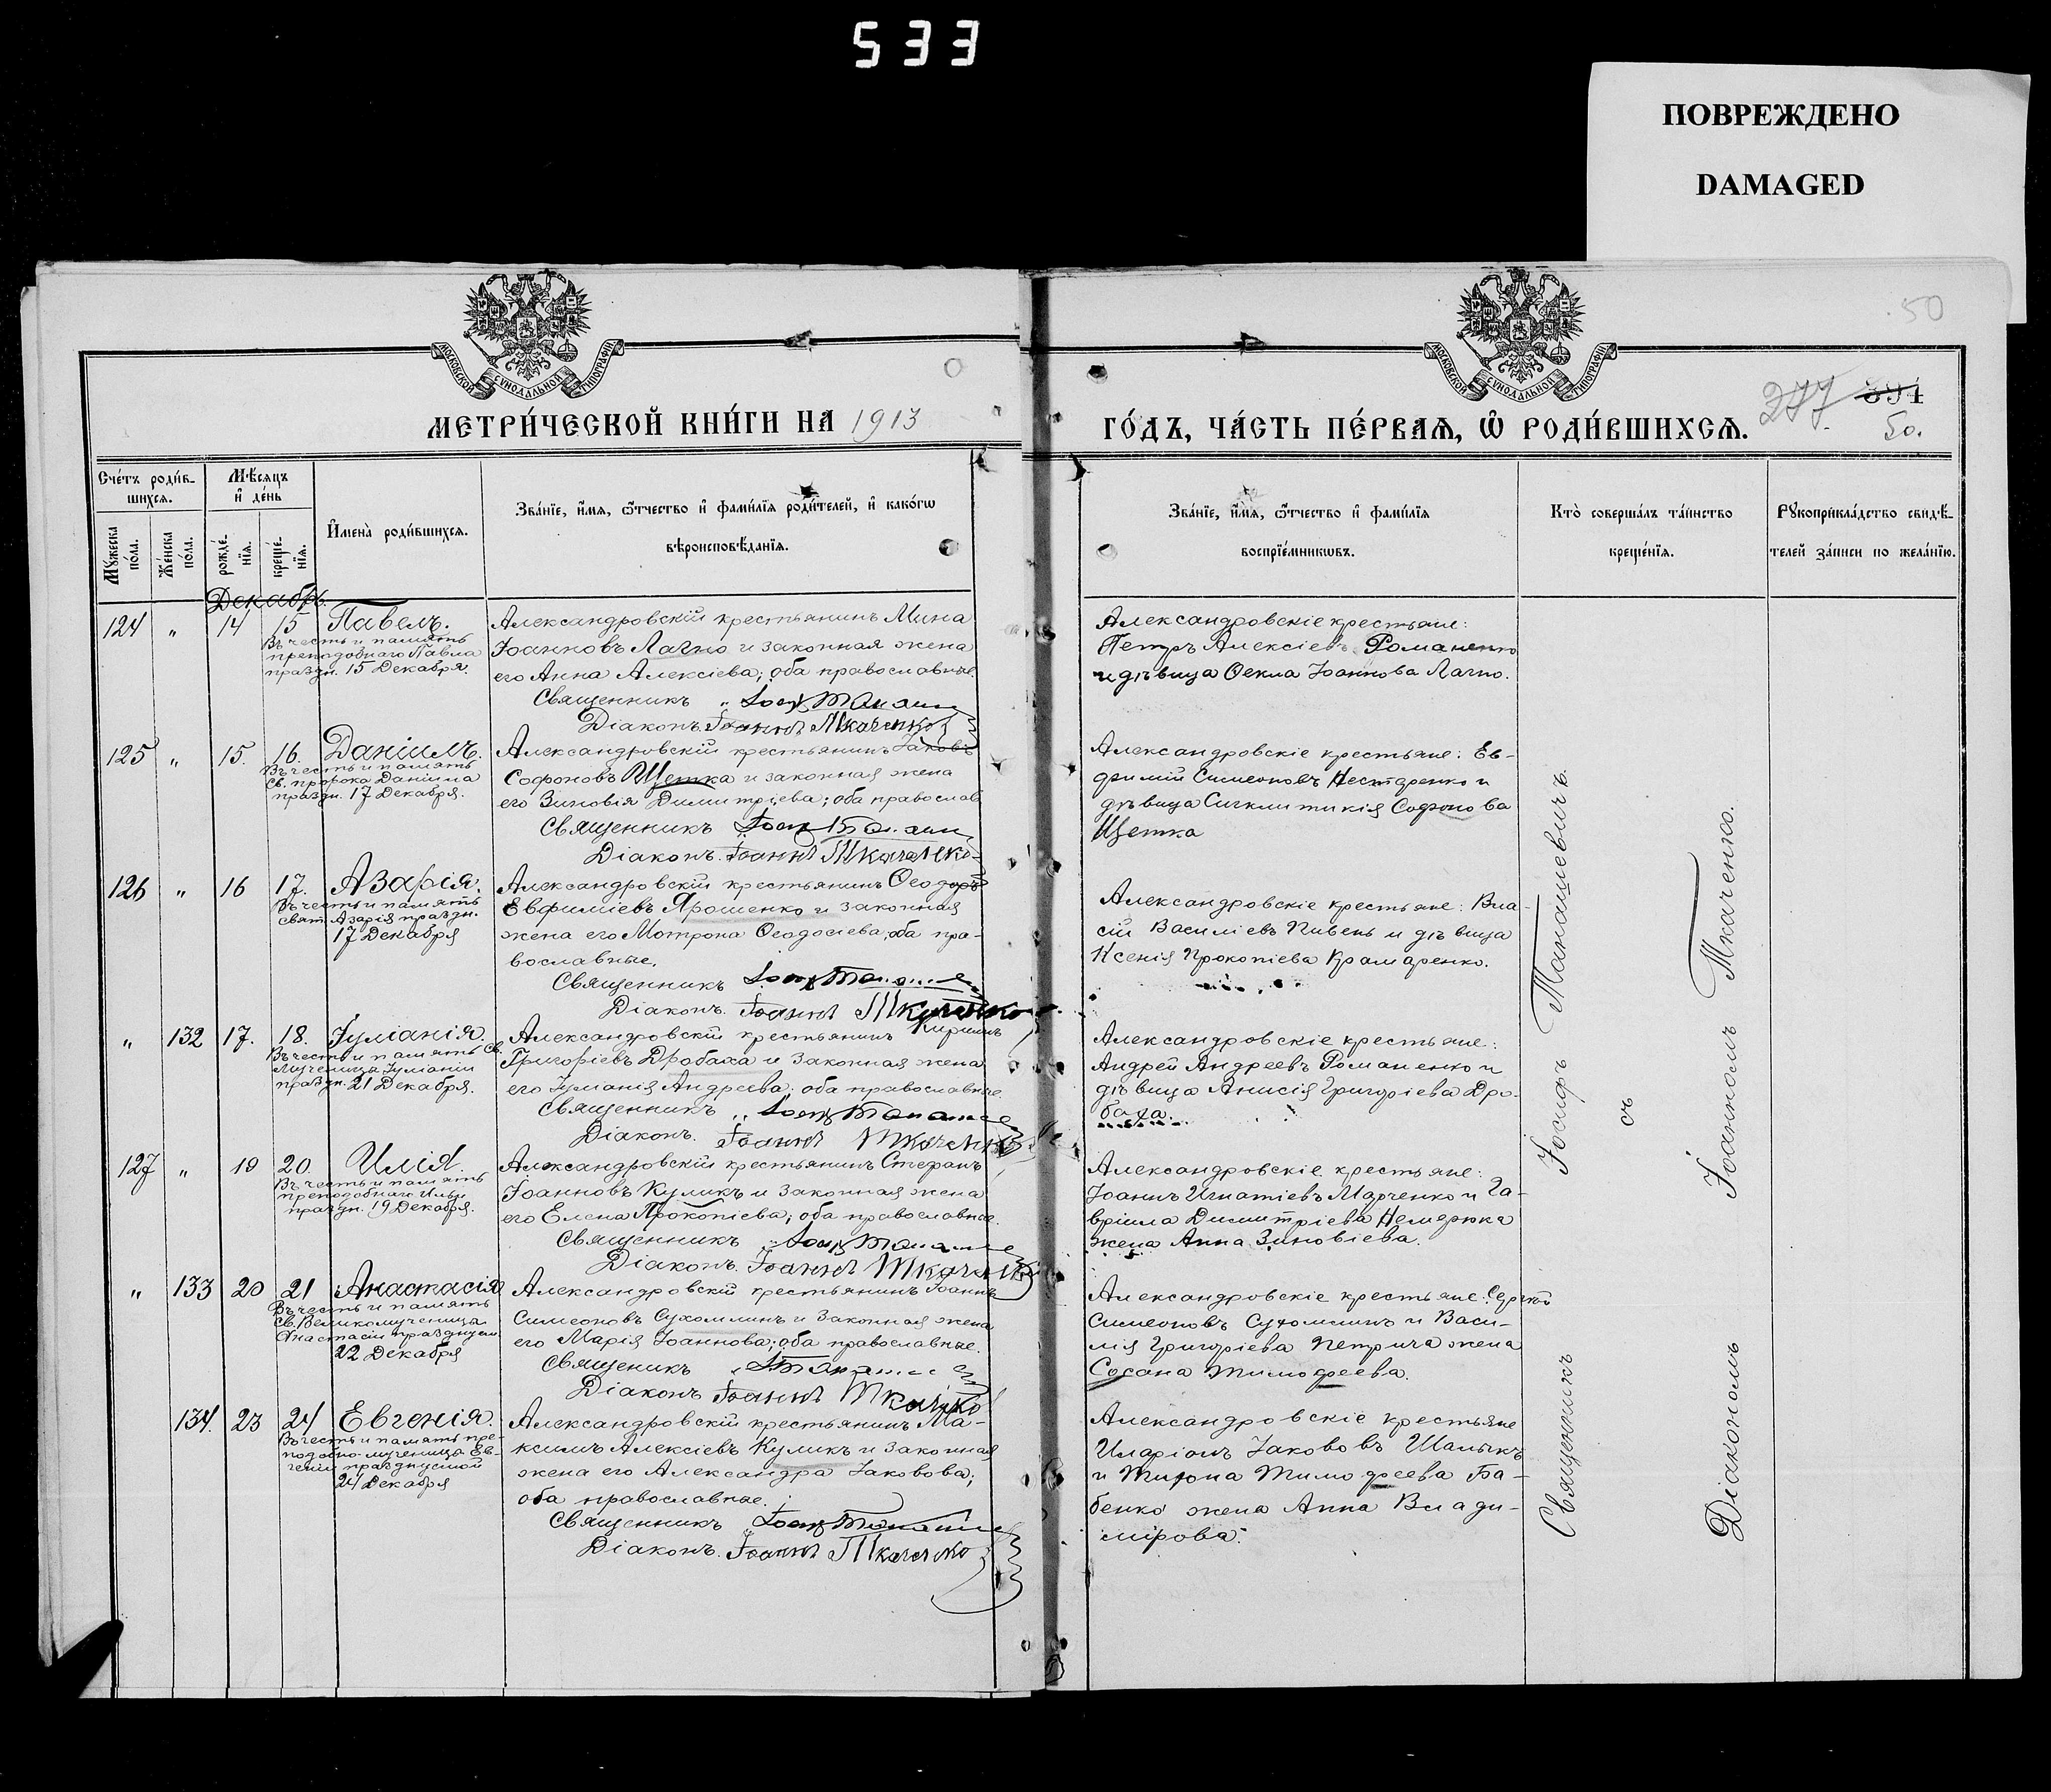 533
ПОВРЕЖДЕНО
DAMAGED
50
МОСКОВСКОЙ СѴНОДАЛЬНОЙ ТИПОГРАФІИ
МОСКОВСКОЙ СѴНОДАЛЬНОЙ ТИПОГРАФІИ
МЕТРИ́ЧЕСКОЙ КНИ́ГИ НА 1913
ГО́ДЪ, ЧА́СТЬ ПЕ́РВАѦ, Ѽ РОДИ́ВШИХСѦ.
277 394
50.
Сче́тъ роди́в-
шихсѧ.
Мꙋжеска по́ла.
Же́нска по́ла.
Мѣ́сѧцъ
и҆ де́нь
рожде́-
нїѧ.
креще́-
нїѧ.
И҆мена̀ роди́вшихсѧ.
Зва́нїе, и҆́мѧ, ѻ҆́тчество и҆ фами́лїѧ роди́телей, и҆ како́гѡ
вѣроисповѣ́данїѧ.
Зва́нїе, и҆́мѧ, ѻ҆́тчество и҆ фами́лїѧ
воспрїе́мникѡвъ.
Кто̀ соверша́лъ та́инство
креще́нїѧ.
Рꙋкоприкла́дство свидѣ́-
телей за́писи по жела́нїю.
Декабрь.
124 " 14 15 Павелъ.
Въ честь и память
преподобнаго Павла
праздн. 15 Декабря.
Александровскій крестьянинъ Мина
Іоанновъ Лагно и законная жена
его Анна Алексіева; оба православные.
Священникъ
Діаконъ Іоаннъ Ткаченко
Александровскіе крестьяне:
Петръ Алексіевъ Романенко
и дѣвица Ѳекла Іоаннова Лагно.
125 " 15. 16. Даніилъ.
Въ честь и память
Св. пророка Даніила
праздн. 17 Декабря.
Александровскій крестьянинъ Іаковъ
Софоновъ Щетка и законная жена
его Зиновія Димитріева; оба православ
Священникъ
Діаконъ. Іоаннъ Ткаченко
Александровскіе крестьяне: Ев-
фимій Симеоновъ Нестеренко и
дѣвица Синклитикія Софонова
Щетка
126 " 16 17. Азарія.
Въ честь и память
свят. Азарія праздн.
17 Декабря
Александровскій крестьянинъ Ѳеодоръ
Евфиміевъ Ярошенко и законная
жена его Мотрона Ѳеодосіева; оба пра-
вославные.
Священникъ
Діаконъ. Іоаннъ Ткаченко
Александровскіе крестьяне: Вла-
сій Василіевъ Пивень и дѣвица
Ксенія Прокопіева Крамаренко.
" 132 17. 18. Іуліанія.
Въ честь и память Св.
Мученицы Іуліаніи
праздн. 21 Декабря.
Александровскій крестьянинъ Кириллъ
Григоріевъ Дробаха и законная жена
его Іуліанія Андреева; оба православные.
Священникъ
Діаконъ. Іоаннъ Ткаченко
Александровскіе крестьяне:
Андрей Андреевъ Романенко и
дѣвица Анисія Григоріева Дро-
баха.
127 " 19 20. Илія.
Въ честь и память
преподобнаго Ильи
праздн. 19 Декабря.
Александровскій крестьянинъ Стефанъ
Іоанновъ Куликъ и законная жена
его Елена Прокопіева; оба православные.
Священникъ
Діаконъ. Іоаннъ Ткаченко
Александровскіе крестьяне:
Іоаннъ Игнатіевъ Марченко и Га-
вріила Димитріева
жена Анна Зиновіева.
" 133 20 21 Анастасія
Въ честь и память
Св. Великомученицы
Анастасіи празднуем.
22 Декабря
Александровскій крестьянинъ Іоаннъ
Симеоновъ Сухомлинъ и законная жена
его Марія Іоаннова; оба православные.
Священикъ
Діаконъ Іоаннъ Ткаченко
Александровскіе крестьяне: Сергѣй
Симеоновъ Сухомлинъ и Васи-
лія Григоріева Петрича жена
Сосана Тимофеева.
134. 23 24 Евгенія.
Въ честь и память пре-
подобно-мученицы Ев-
геніи празднуемой
24 Декабря
Александровскій крестьянинъ Ма-
ксимъ Алексіевъ Куликъ и законная
жена его Александра Іаковова;
оба православные.
Священникъ
Діаконъ. Іоаннъ Ткаченко
Александровскіе крестьяне
Иларіонъ Іакововъ
и Тихона Тимофеева Ба-
бенко жена Анна Влади-
мірова.
Священникъ Іосифъ Танашевичъ
съ
Діакономъ Іоанномъ Ткаченко.